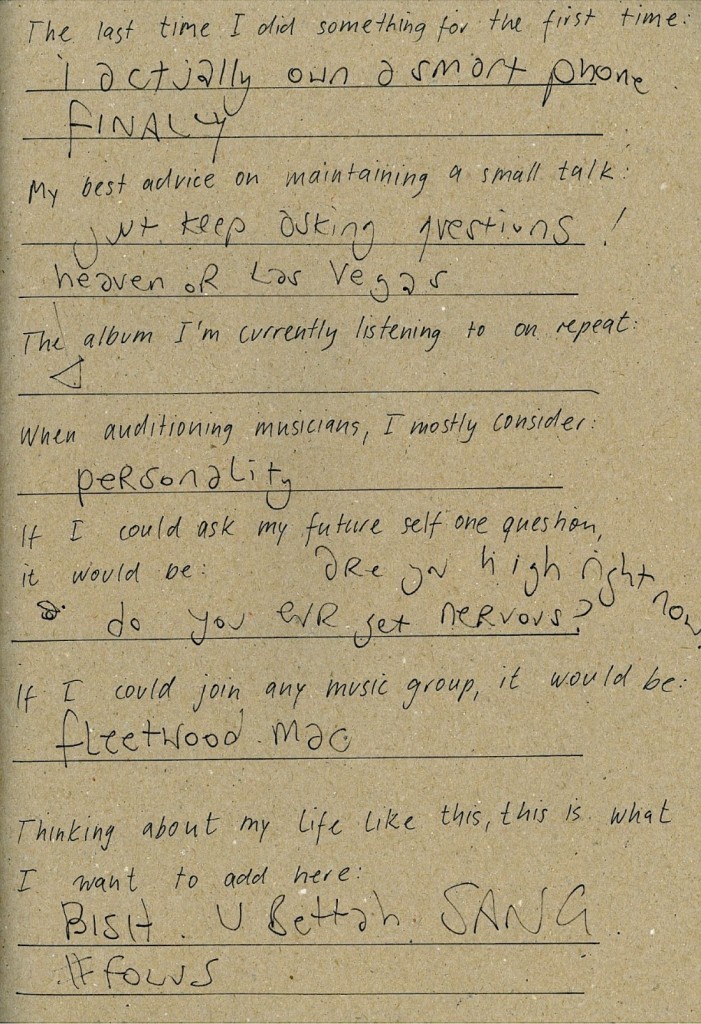 The last time I did something for the first time:
i actually own a smart phone
FINALLY
My best advice on maintaining a small talk:
just keep asking questions!
heaven oR Las Vegas
The album I'm currently listening to on repeat:
When auditioning musicians, I mostly consider:
peRsonaLity
If I could ask my future self one question,
it would be: aRe you high right now
do you evR get neRvous?
If I could join any music group, it would be:
fLeetwood mac
Thinking about my life like this, this is what
I want to add here:
BISH. U Bettah. SANG